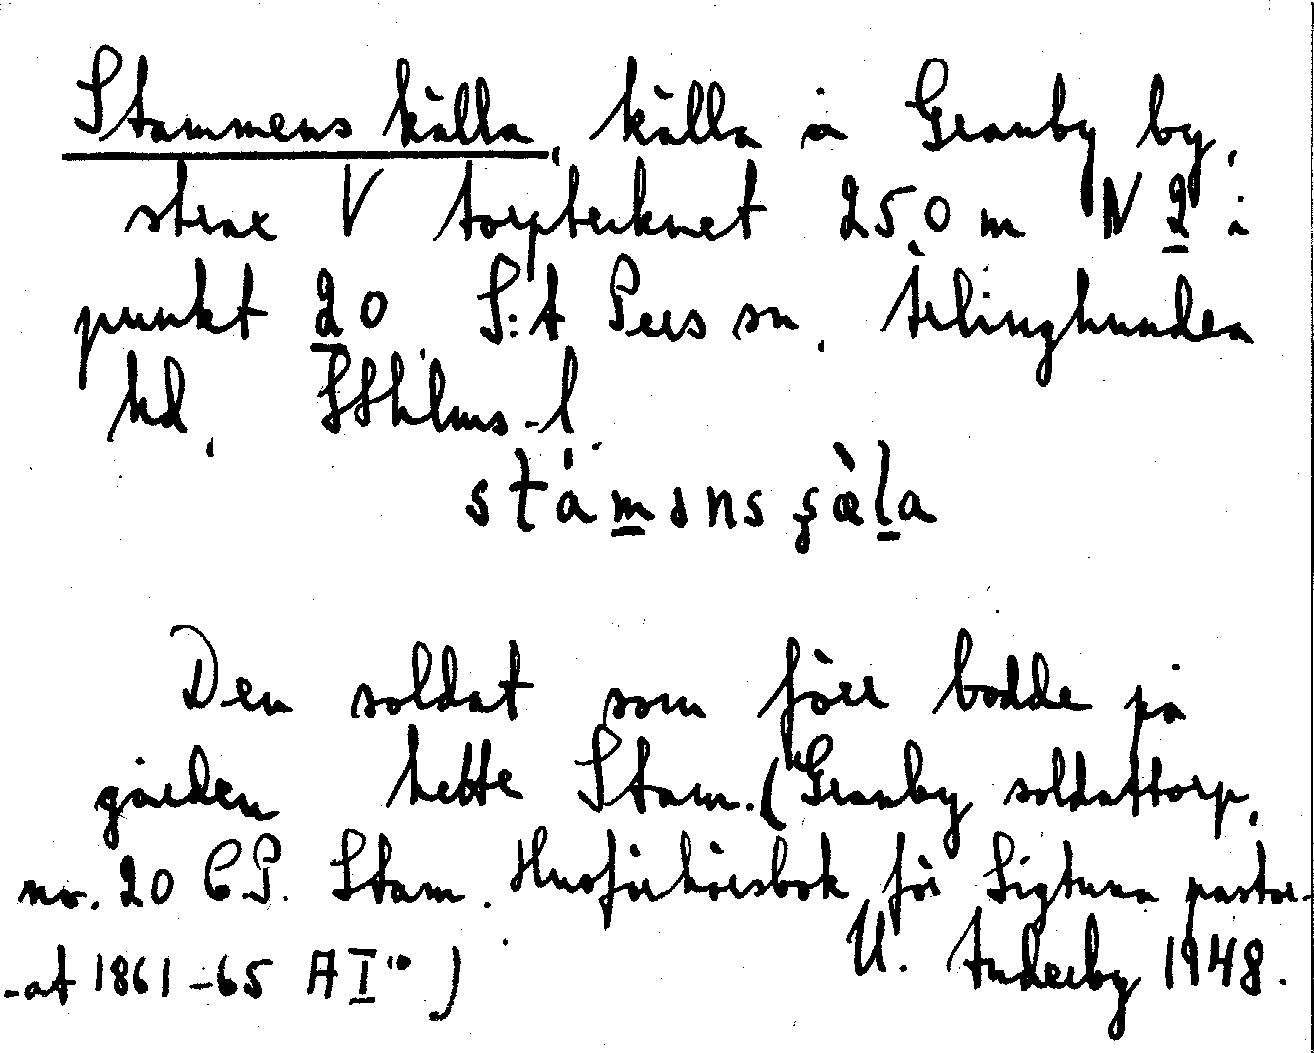 Stammens källa, källa å Granby by,
strax V torptecknet 250 m N 2 i
punkt 20. S:t Pers sn, Ärlinghundra
hd, Sthlms-l.
Den soldat som förr bodde på
gården hette Stam. (Granby soldattorp,
no. 20 C.P. Stam. Husförhörsbok för Sigtuna pastor-
-at 1861-65 A I 10)
U. 1948.